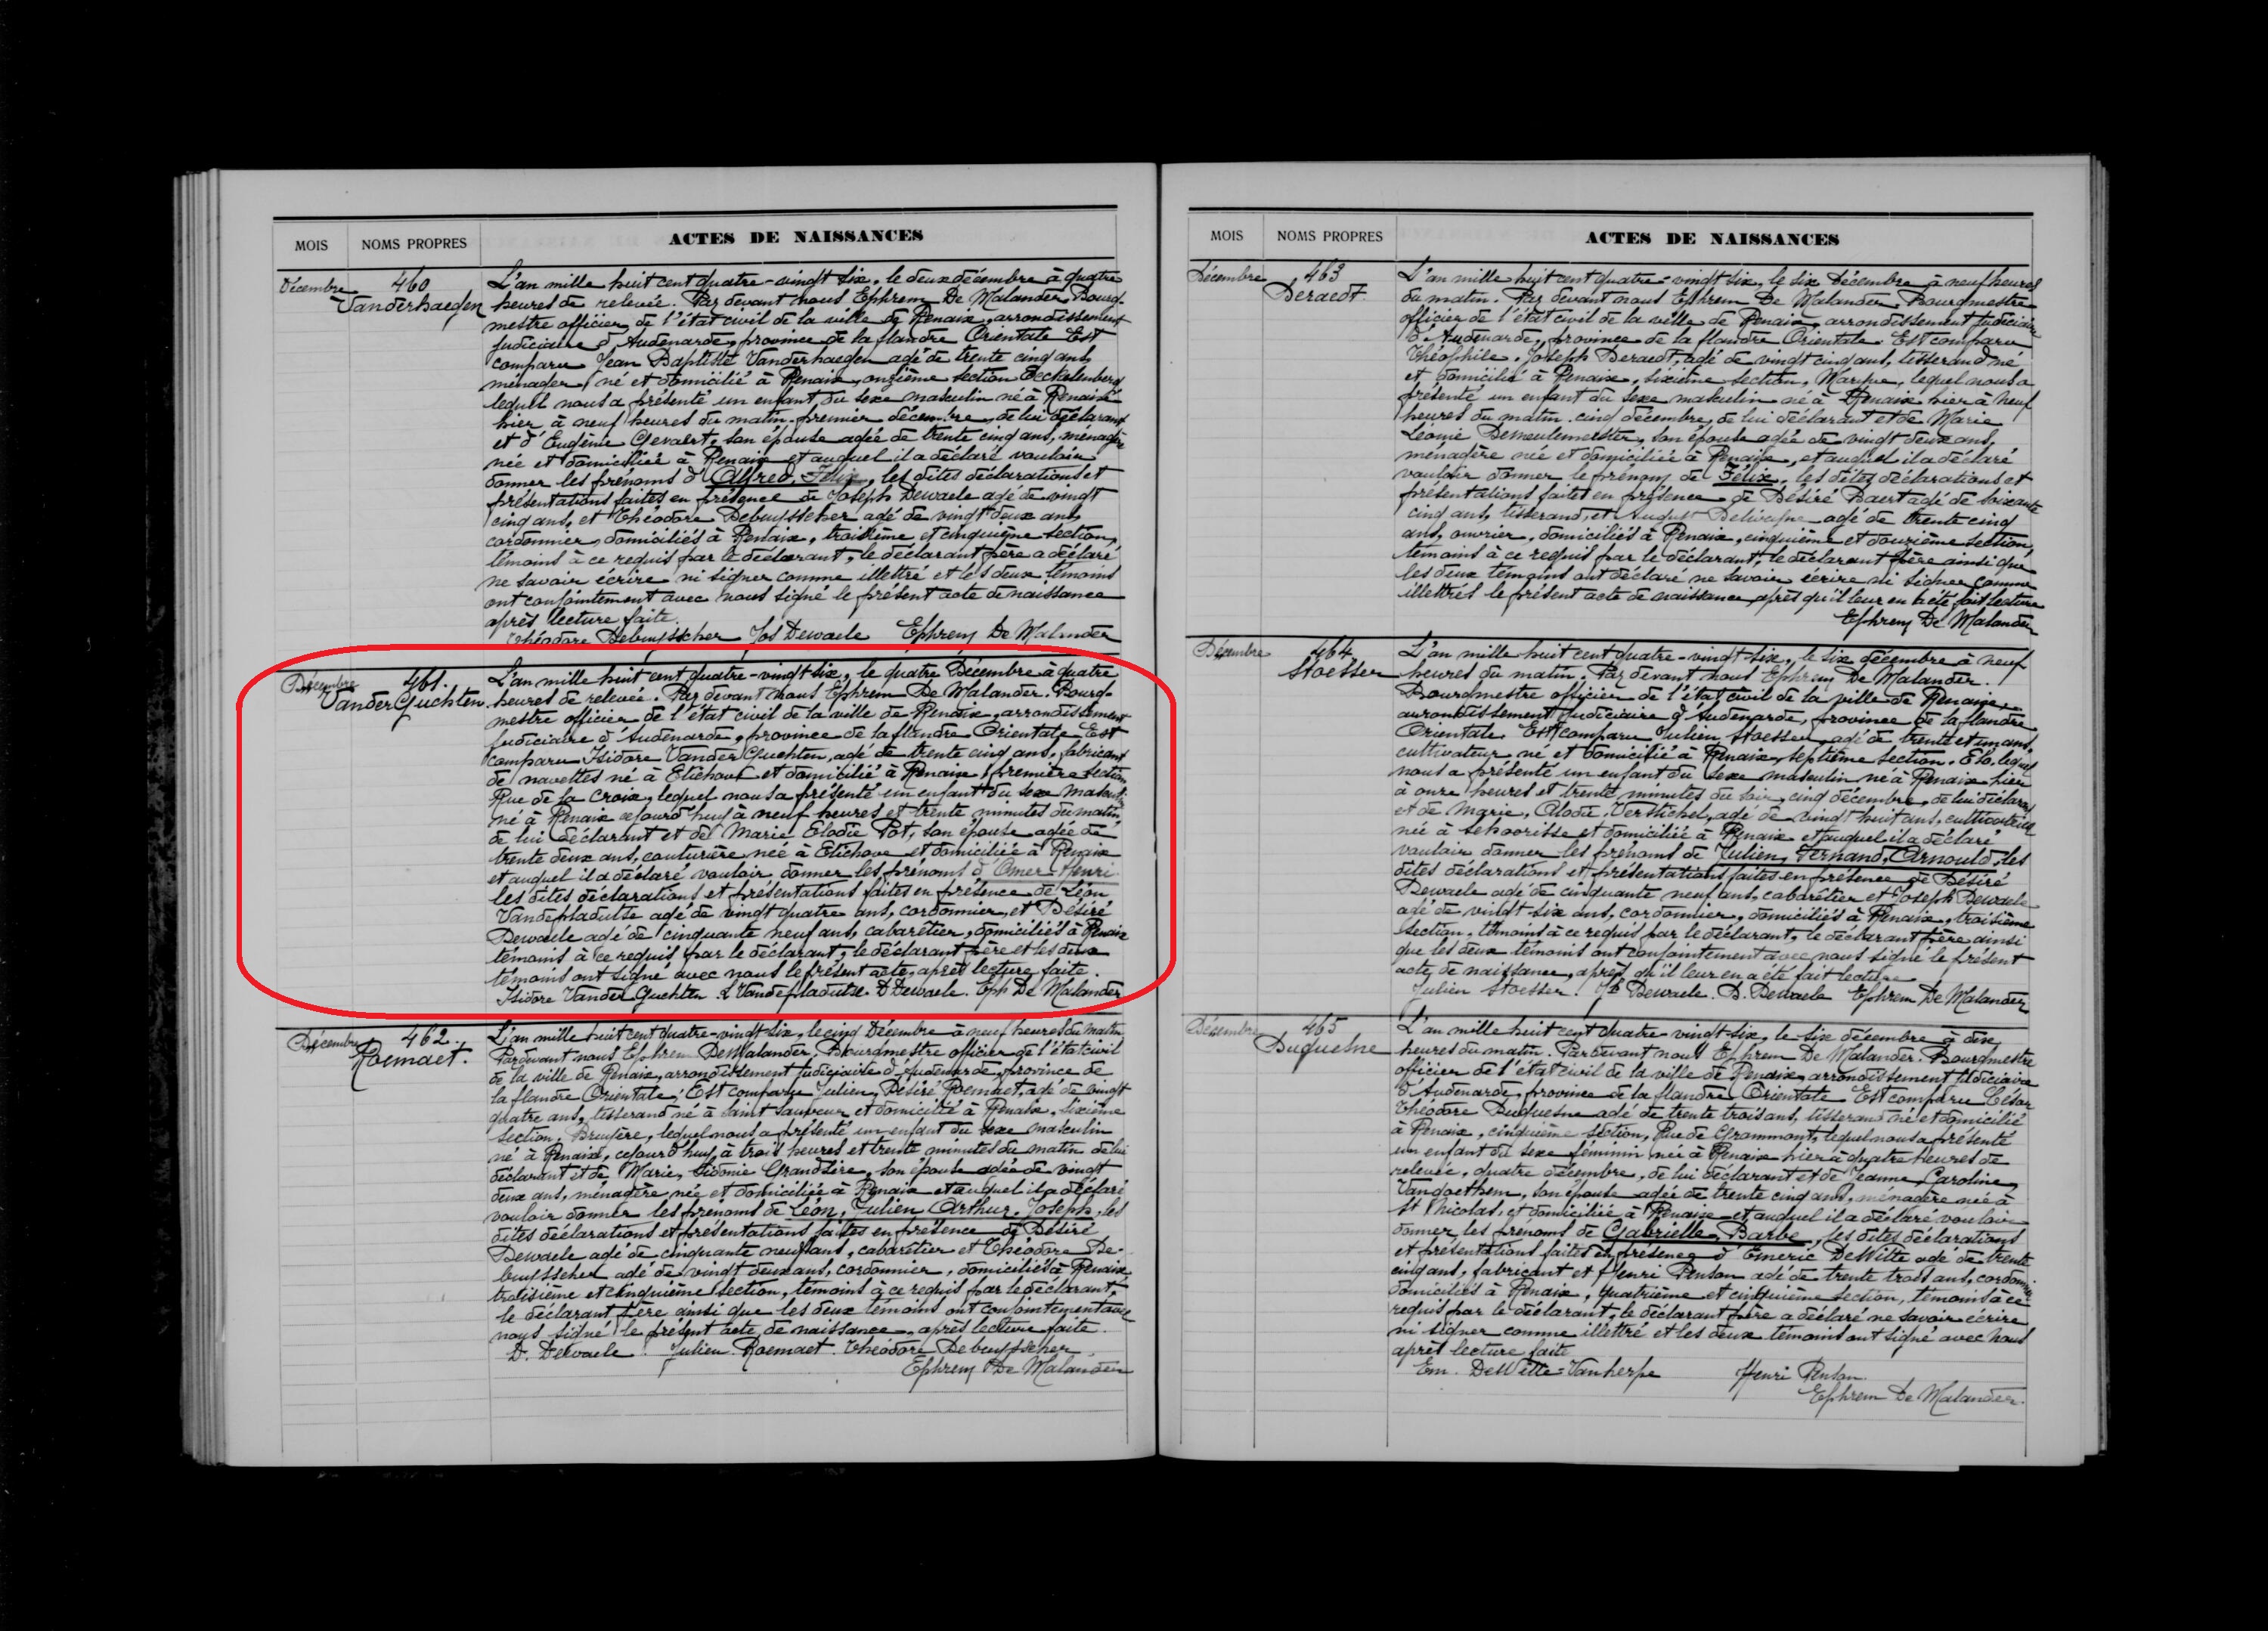 MOIS NOMS PROPRES ACTES DE NAISSANCES
Décembre 460
Vanderhaegen
L'an mille huit cent quatre-vingt six, le deux décembre à quatre
heures de relevée. Par devant nous Ephrem De Malander Bourg-
mestre officier de l'état civil de la ville de Renaix, arrondissement
judiciaire d'Audenarde, province de la flandre Orientale Est
comparu Jean Baptiste Vanderhaegen agé de trente cinq ans,
ménager né et domicilié à Renaix, onzième section Eeckelenberg
lequel nous a présenté un enfant du sexe masculin né à Renaix
hier à neuf heures du matin premier décembre, de lui déclarant
et d'Eugènie Gevaert, son épouse agée de trente cinq ans, ménagère
née et domiciliée à Renaix et auquel il a déclaré vouloir
donner les prénoms d'Alfred, Félix, les dites déclarations et
présentations faites en présence de Joseph Dewaele agé de vingt
cinq ans, et Théodore Debuysscher agé de vingt deux ans,
cordonnier, domiciliés à Renaix, troisième et cinquième section,
témoins à ce requis par le déclarant, le déclarant père a déclaré
ne savoir écrire ni signer comme illettré et les deux témoins
ont conjointement avec nous signé le présent acte de naissance
après lecture faite.
Théodore Debuysscher Jos Dewaele Ephrem De Malander
Décembre 461.
VanderGuchten
L'an mille huit cent quatre-vingt six, le quatre Décembre à quatre
heures de relevée. Par devant nous Ephrem De Malander. Bourg-
mestre officier de l'état civil de la ville de Renaix, arrondissement
judiciaire d'Audenarde, province de la flandre Orientale Est
comparu Isidore VanderGuchten, agé de trente cinq ans, fabricant
de navettes né à Etichove et domicilié à Renaix, première section
Rue de la Croix, lequel nous a présenté un enfant du sexe masculin
né à Renaix cejourd'huy à neuf heures et trente minutes du matin
de lui déclarant et de Marie Elodie Pot, son épouse agée de
trente deux ans, couturière née à Etichove et domiciliée à Renaix
et auquel il a déclaré vouloir donner les prénoms d'Omer-Henri
les dites déclarations et présentations faites en présence de Léon
Vandepladutse agé de vingt quatre ans, cordonnier, et Désiré
Dewaele agé de cinquante neuf ans, cabaretier, domiciliés à Renaix
témoins à ce requis par le déclarant, le déclarant père et les deux
témoins ont signé avec nous le présent acte, après lecture faite.
Isidore Vander Guchten L Vandepladutse. D Dewaele. Eph De Malander
Décembre 462.
Roemaet.
L'an mille huit cent quatre-vingt six, le cinq Décembre à neuf heures du matin
Par devant nous Ephrem De Malander, Bourgmestre officier de l'état civil
de la ville de Renaix, arrondissement judiciaire d'Audenarde, province de
la flandre Orientale, Est comparu Julien, Désiré Roemaet, agé de vingt
quatre ans, tisserand né à Saint Sauveur et domicilié à Renaix, sixième
section. Bruyère, lequel nous a présenté un enfant du sexe masculin
né à Renaix, cejourd'huy à trois heures et trente minutes du matin de lui
déclarant et de Marie, Sidonie Grandsire, son épouse agée de vingt
deux ans, ménagère née et domiciliée à Renaix et auquel il a déclaré
vouloir donner les prénoms de Léon, Julien Arthur, Joseph, les
dites déclarations et présentations faites en présence de Désiré
Dewaele agé de cinquante neuf ans, cabaretier et Théodore De-
buysscher agé de vingt deux ans, cordonnier, domiciliés à Renaix
troisième et cinquième section, témoins à ce requis par le déclarant,
le déclarant père ainsi que les deux témoins ont conjointement avec
nous signé le présent acte de naissance, après lecture faite.
D. Dewaele. Julien Roemaet. Théodore Debuysscher.
Ephrem De Malander
MOIS NOMS PROPRES ACTES DE NAISSANCES
Décembre 463
Deraedt.
L'an mille huit cent quatre-vingt six, le six Décembre à neuf heures
du matin. Par devant nous Ephrem De Malander. Bourgmestre
officier de l'état civil de la ville de Renaix, arrondissement judiciaire
d'Audenarde, province de la flandre Orientale. Est comparu
Théophile. Joseph Deraedt, agé de vingt cinq ans, tisserand né
et domicilié à Renaix, sixième section, lequel nous a
présenté un enfant du sexe masculin né à Renaix hier à neuf
heures du matin. cinq décembre, de lui déclarant et de Marie
Léonie Demeulemeester, son épouse agée de vingt deux ans,
ménagère née et domiciliée à Renaix, et auquel il a déclaré
vouloir donner le prénom de Félix, les dites déclarations et
présentations faites en présence de Désiré Baert agé de soixante
cinq ans, tisserand, et August agé de trente cinq
ans, ouvrier, domiciliés à Renaix, cinquième et douzième section,
témoins à ce requis par le déclarant, le déclarant père ainsi que
les deux témoins ont déclaré ne savoir écrire ni signer comme
illettrés le présent acte de naissance, après qu'il leur en a été fait lecture
Ephrem De Malander
Décembre 464
Stoesser
L'an mille huit cent quatre-vingt six, le six décembre à neuf
heures du matin. Par devant nous Ephrem De Malander.
Bourgmestre officier de l'état civil de la ville de Renaix,
aurondissement judiciaire d'Audenarde, province de la flandre
Orientale. Est comparu Julien Stoesser, agé de trente et un ans,
cultivateur né et domicilié à Renaix, septième section. Els, lequel
nous a présenté un enfant du sexe masculin né à Renaix hier
à onze heures et trente minutes du soir, cinq décembre, de lui déclarant
et de Marie, Elodie, Verstichel, agé de vingt huit ans, cultivatrice
née à Schoorisse et domiciliée à Renaix et auquel il a déclaré
vouloir donner les prénoms de Julien, Fernand, Arnould, les
dites déclarations et présentations faites en présence de Désiré
Dewaele agé de cinquante neuf ans, cabaretier et Joseph Dewaele
agé de vingt-six ans, cordonnier, domiciliés à Renaix, troisième
section, témoins à ce requis par le déclarant, le déclarant père ainsi
que les deux témoins ont conjointement avec nous signé le présent
acte de naissance, après qu'il leur en a été fait lecture
Julien Stoesser. Dewaele. D. Dewaele Ephrem De Malander
Décembre 465
Duquesne
L'an mille huit cent quatre-vingt-six, le six décembre à dix
heures du matin. Par devant nous Ephrem De Malander. Bourgmestre
officier de l'état civil de la ville de Renaix, arrondissement judiciaire
d'Audenarde, province de la flandre Orientale Est comparu César
Théodore Duquesne agé de trente trois ans, tisserand né et domicilié
à Renaix, cinquième section, Rue de Grammont, lequel nous a présenté
un enfant du sexe féminin née à Renaix hier à quatre heures de
relevée, quatre décembre, de lui déclarant et de Jeanne Caroline,
Vangoethem, son épouse agée de trente cinq ans, ménagère née à
St Nicolas, et domiciliée à Renaix et auquel il a déclaré vouloir
donner les prénoms de Gabrielle, Barbe, les dites déclarations
et présentations faites en présence d'Emeric DeWitte agé de trente
cinq ans, fabricant et Henri Penson agé de trente trois ans, cordonnier
domiciliés à Renaix, quatrième et cinquième section, témoins à ce
requis par le déclarant, le déclarant père a déclaré ne savoir écrire
ni signer comme illettré et les deux témoins ont signé avec nous
après lecture faite
Em. DeWitte-Vanherpe Henri Penson.
Ephrem De Malander.